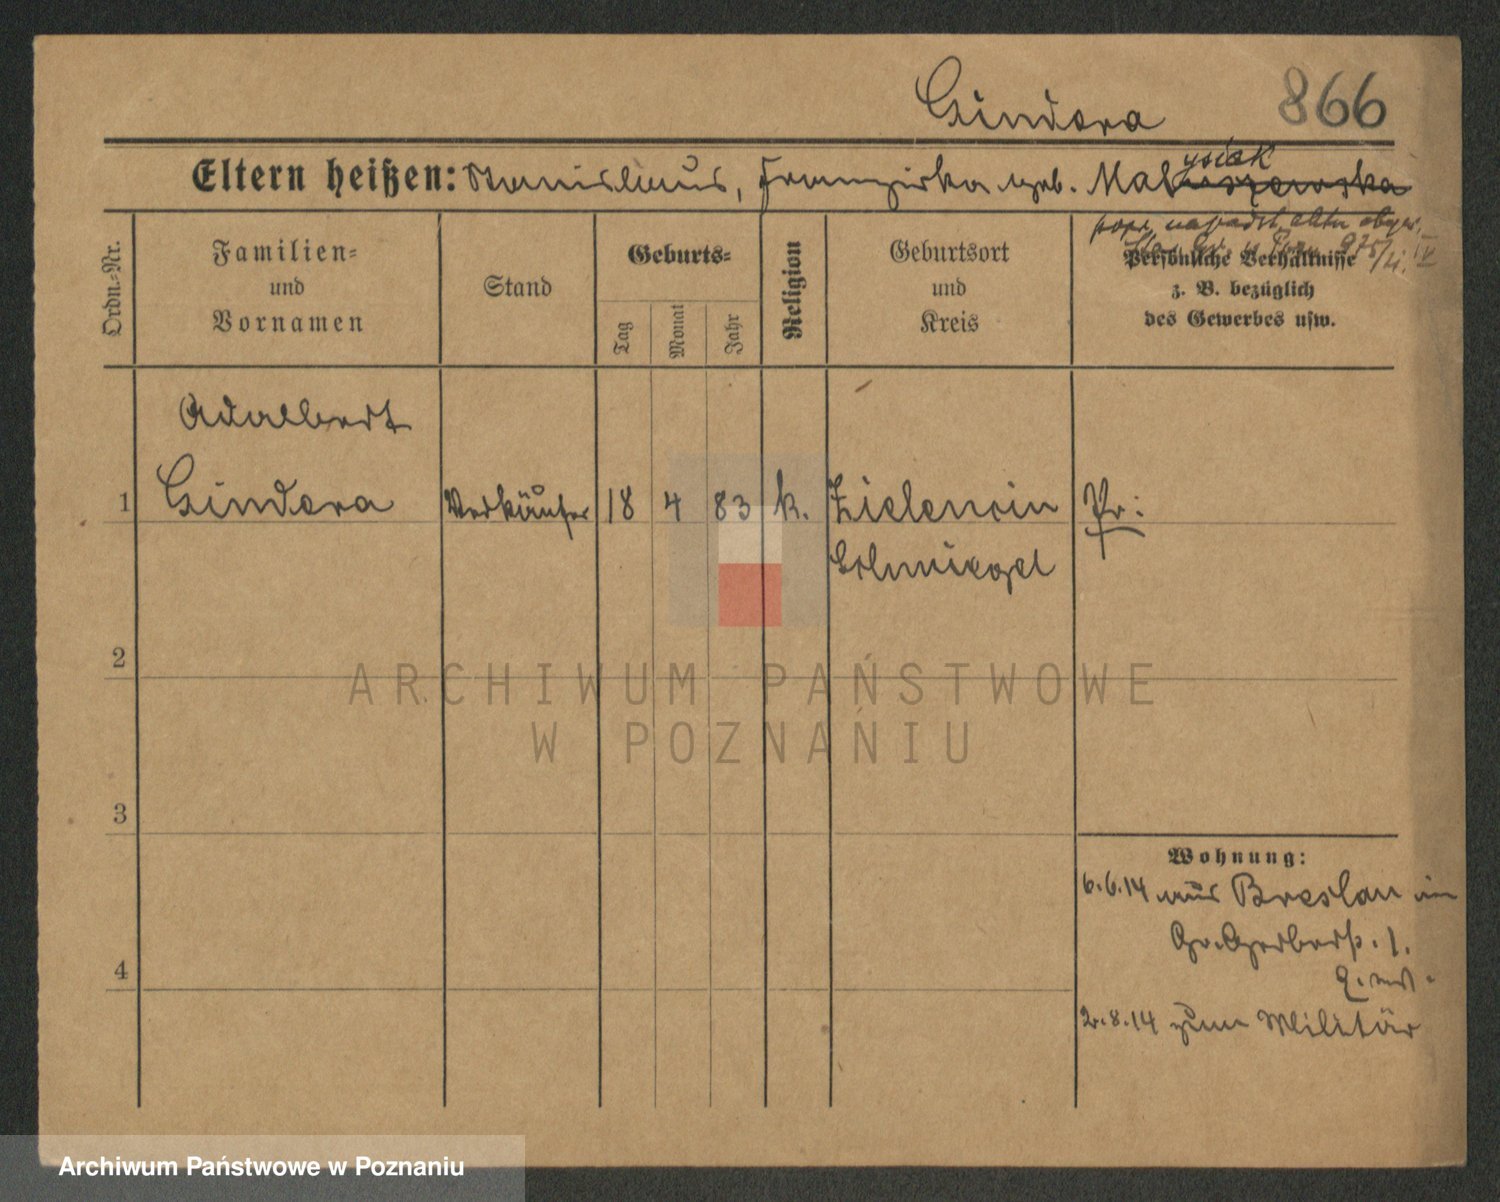 Gindera 866
Eltern heißen: Stanislaus, Franziska geb. Maliszewska
ysiak
Ordn.-Nr.
Familien-
und
Vornamen
Stand
Geburts-
Tag
Monat
Jahr
Religion
Geburtsort
und
Kreis
Persönliche Verhältnisse
z. B. bezüglich
des Gewerbes usw.
Adalbert
1 Gindera Verkäufer 18 4 83 k. Zielencin Pr:
Schmiegel
2
3
4
Wohnung:
6.6.14 aus Breslau in
Gr. Gerberst. 1.
2.8.14 zum Militär
ARCHIWUM PAŃSTWOWE
W POZNANIU
Archiwum Państwowe w Poznaniu